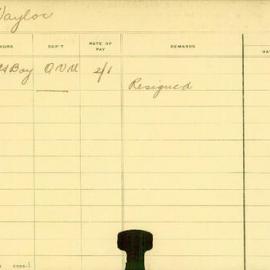 Taylor
DEP'T RATE OF PAY REMARKS
Boy O.V.M 2/1
Resigned